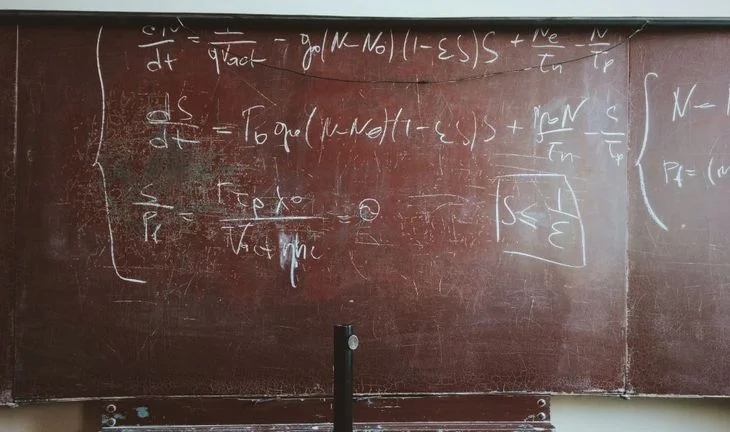 dN/dt = I/qVact - g₀(N-N₀)(1-εS)S + Nₑ/τₙ - N/τₚ
dS/dt = Γ₀g₀(N-N₀)(1-εS)S + N/τₙ - S/τₚ
S/Pf = Γτₚλ₀/Vact ηhc = ϑ
S ≤ 1/ε
N -
Pf = (m